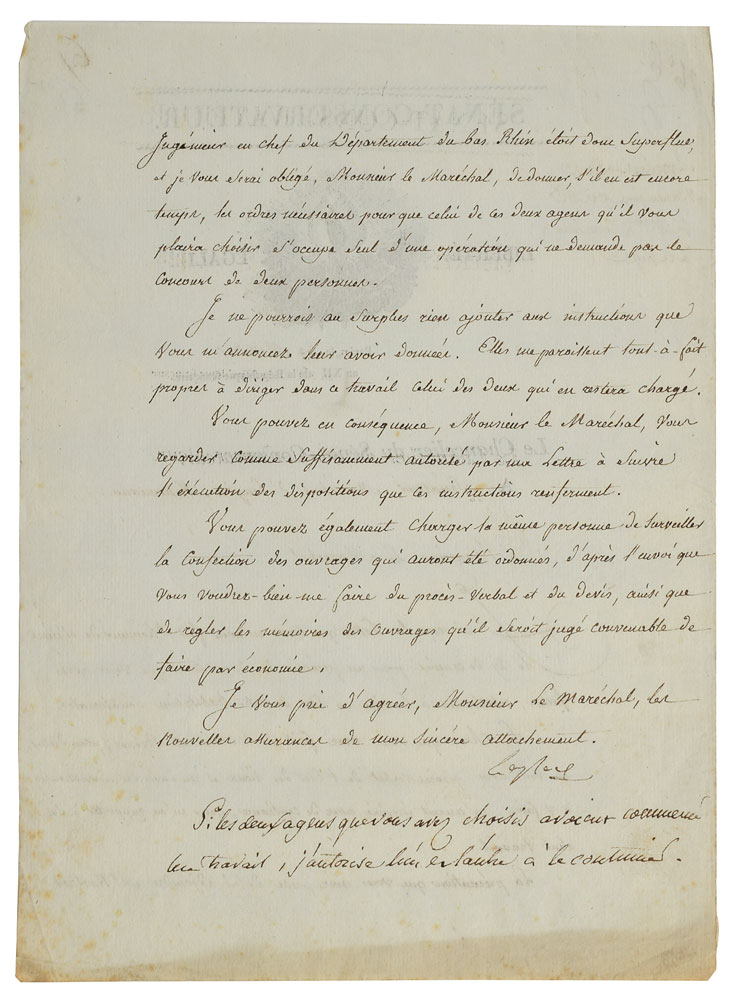 Ingénieur en chef du Département du bas Rhin étoit donc superflue,
et je vous serai obligé, Monsieur le Maréchal, de donner, s'il en est encore
temps, les ordres nécessaires pour que celui de ces deux agens qu'il vous
plaira choisir s'occupe seul d'une opération qui ne demande pas le
concours de deux personnes.
Je ne pourrois au surplus rien ajouter aux instructions que
vous m'annoncez leur avoir données. Elles me paroissent tout-à-fait
propres à diriger dans ce travail celui des deux qui en restera chargé.
Vous pouvez en conséquence, Monsieur le Maréchal, vous
regarder comme suffisamment autorisé par ma Lettre à suivre
l'éxécution des dispositions que ces instructions renferment.
Vous pouvez également charger la même personne de surveiller
la confection des ouvrages qui auront été ordonnés, d'après l'envoi que
vous voudrez-bien-me faire du procès-verbal et du devis, ainsi que
de régler les mémoires des ouvrages qu'il seroit jugé convenable de
faire par économie.
Je vous prie d'agréer, Monsieur Le Maréchal, les
nouvelles assurances de mon sincère attachement.
Laplace
Si les deux agens que vous avez choisis avoient commencé
leur travail, j'autorise l'un et l'autre à le continuer.